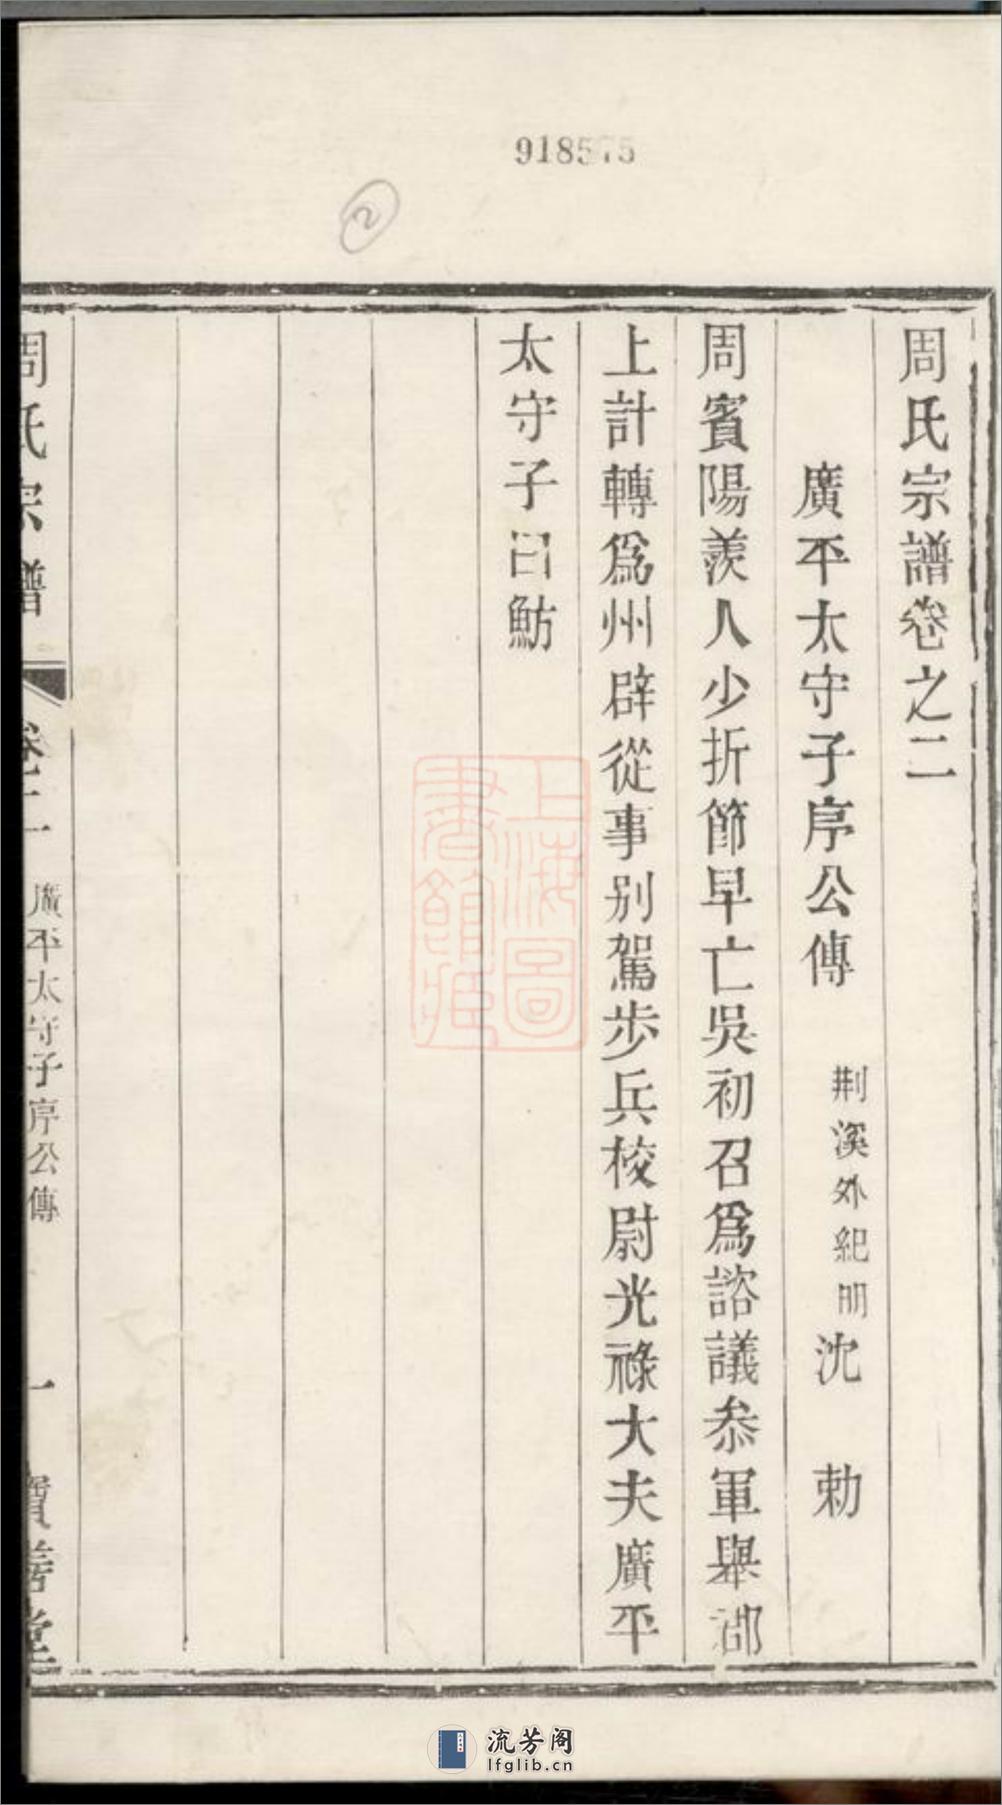 918575
2
周氏宗譜卷之二
廣平太守子序公傳 荆溪外紀明 沈 勅
周賓陽羨人少折節早亡吳初召爲諮議叅軍舉
上計轉爲州辟從事别駕步兵校尉光祿大夫廣平
太守子曰魴
周氏宗譜
卷二
廣平太守子序公傳
一
善堂
上海圖書館藏
流芳阁
lfglib.cn